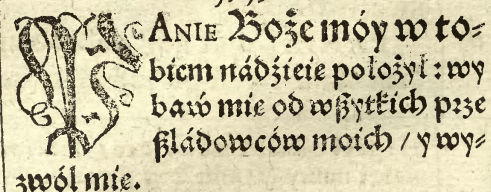 PANIE Boże móy w to⸗
biem nádźieie położył: wy
baẃ mie od wßytkich prze
ßládowców moich / y wy⸗
zwól mie.